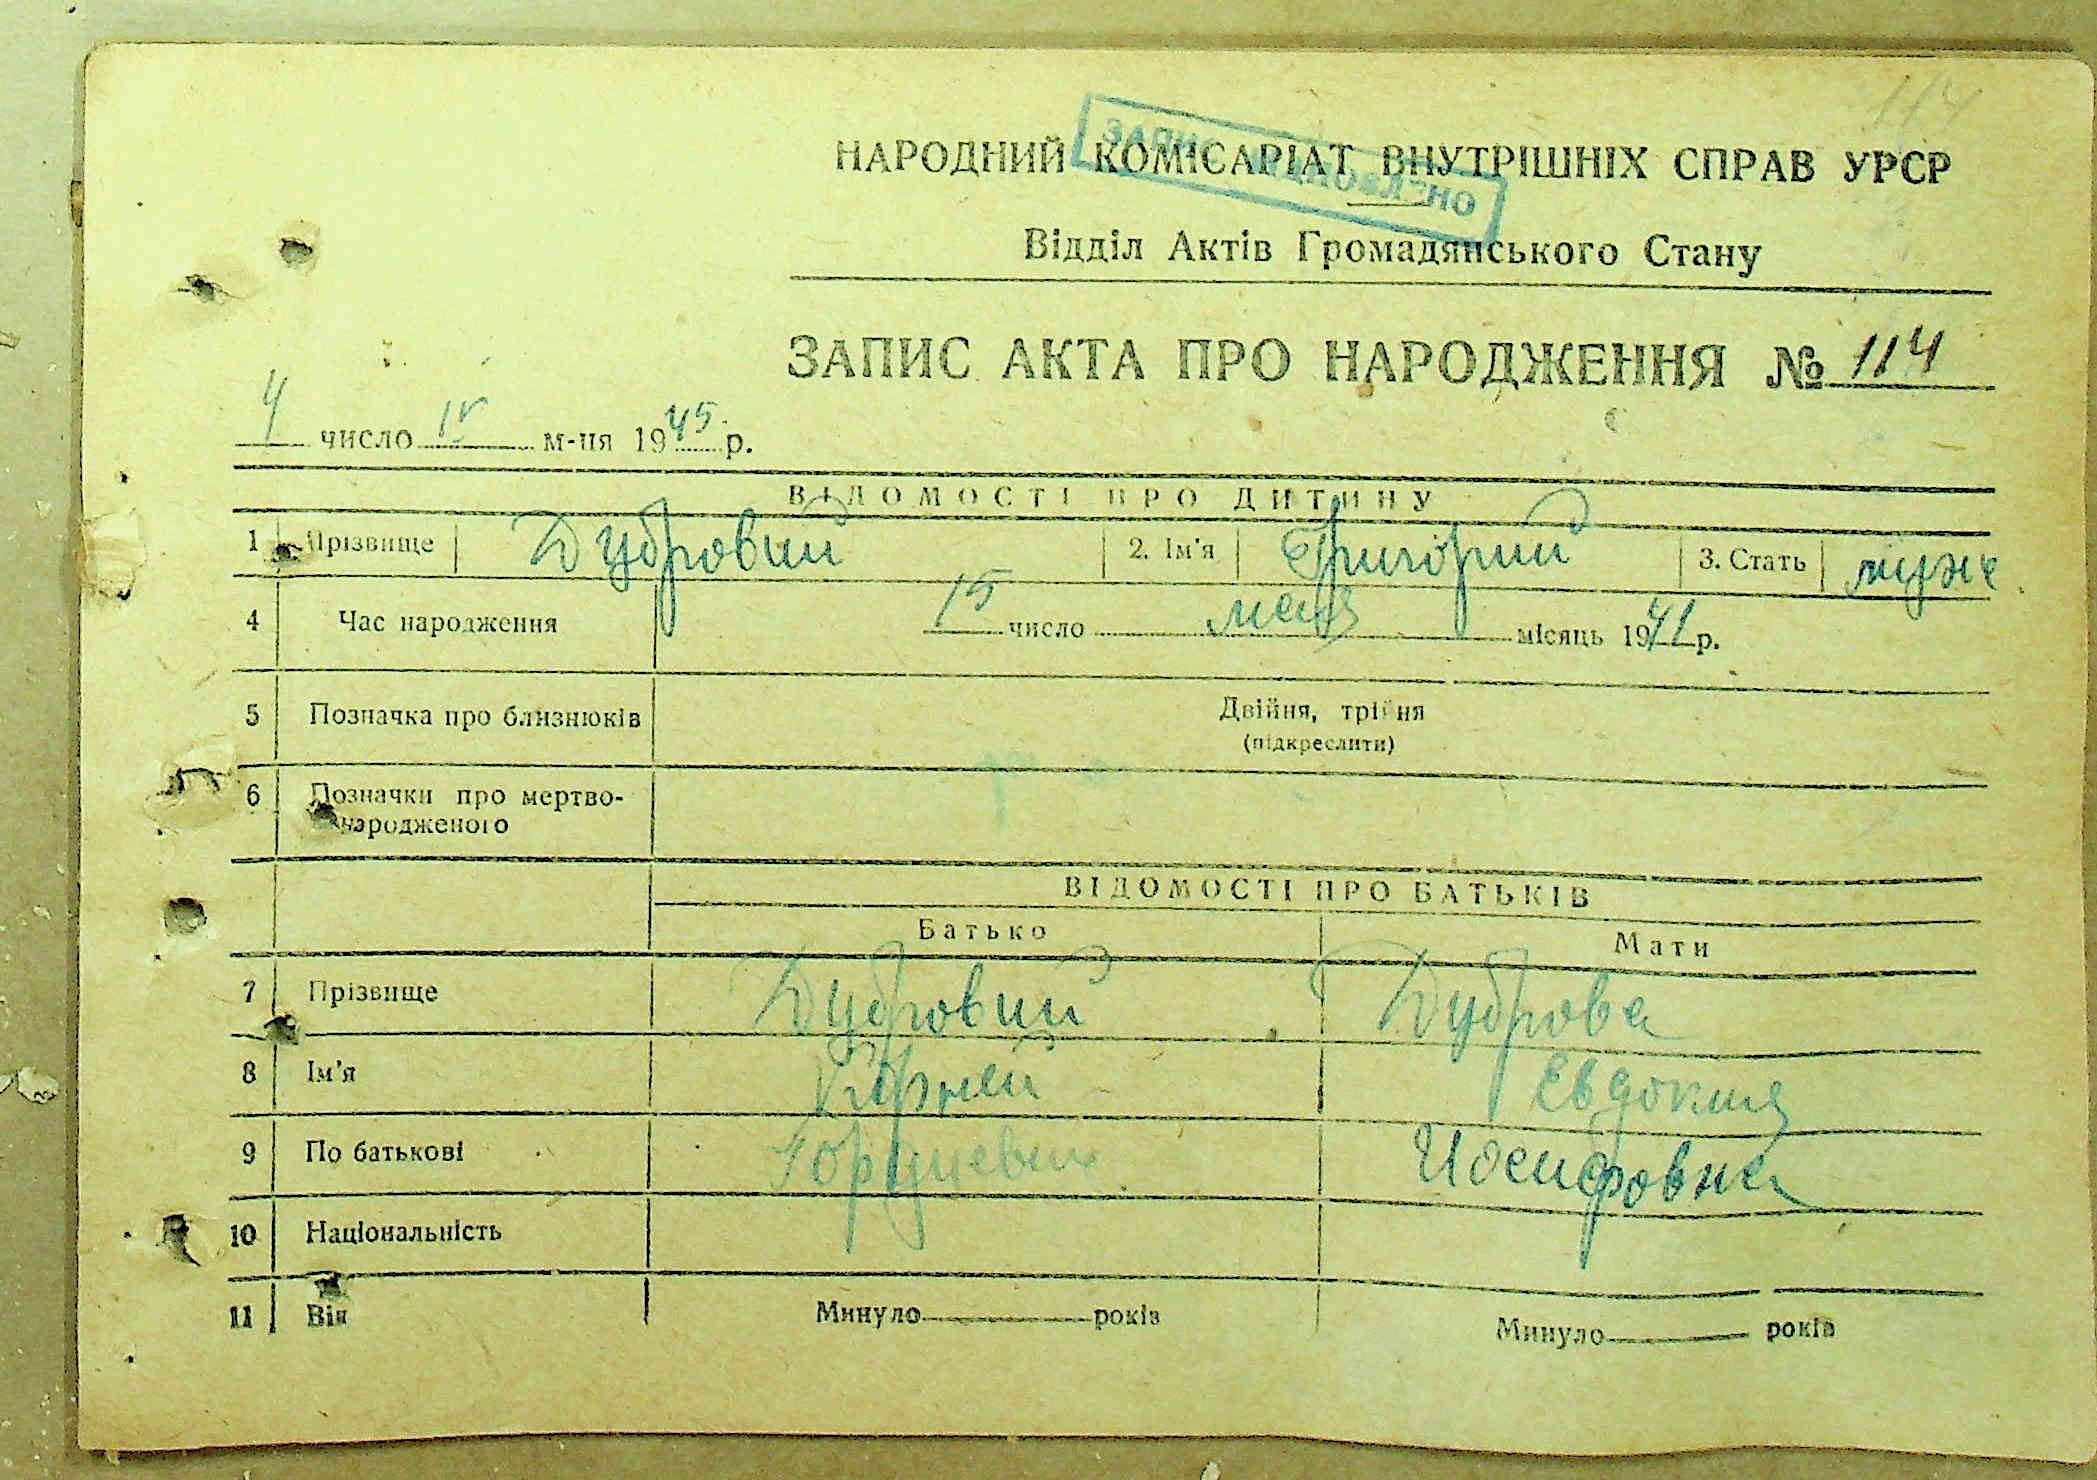 114
НАРОДНИЙ КОМІСАРІАТ ВНУТРІШНІХ СПРАВ УРСР
Відділ Актів Громадянського Стану
ЗАПИС АКТА ПРО НАРОДЖЕННЯ № 114
4 число IV м-ця 1945 р.
ВІДОМОСТІ ПРО ДИТИНУ
1 Прізвище Дубровий 2. Ім'я Григорий 3. Стать муж
4 Час народження 15 число мая місяць 1941 р.
5 Позначка про близнюків Двійня, трійня
(підкреслити)
6 Позначки про мертво-
народженого
ВІДОМОСТІ ПРО БАТЬКІВ
Батько Мати
7 Прізвище Дубровий Дуброва
8 Ім'я Корней Евдокия
9 По батькові Иосифовна
10 Національність
11 Вік Минуло років Минуло років